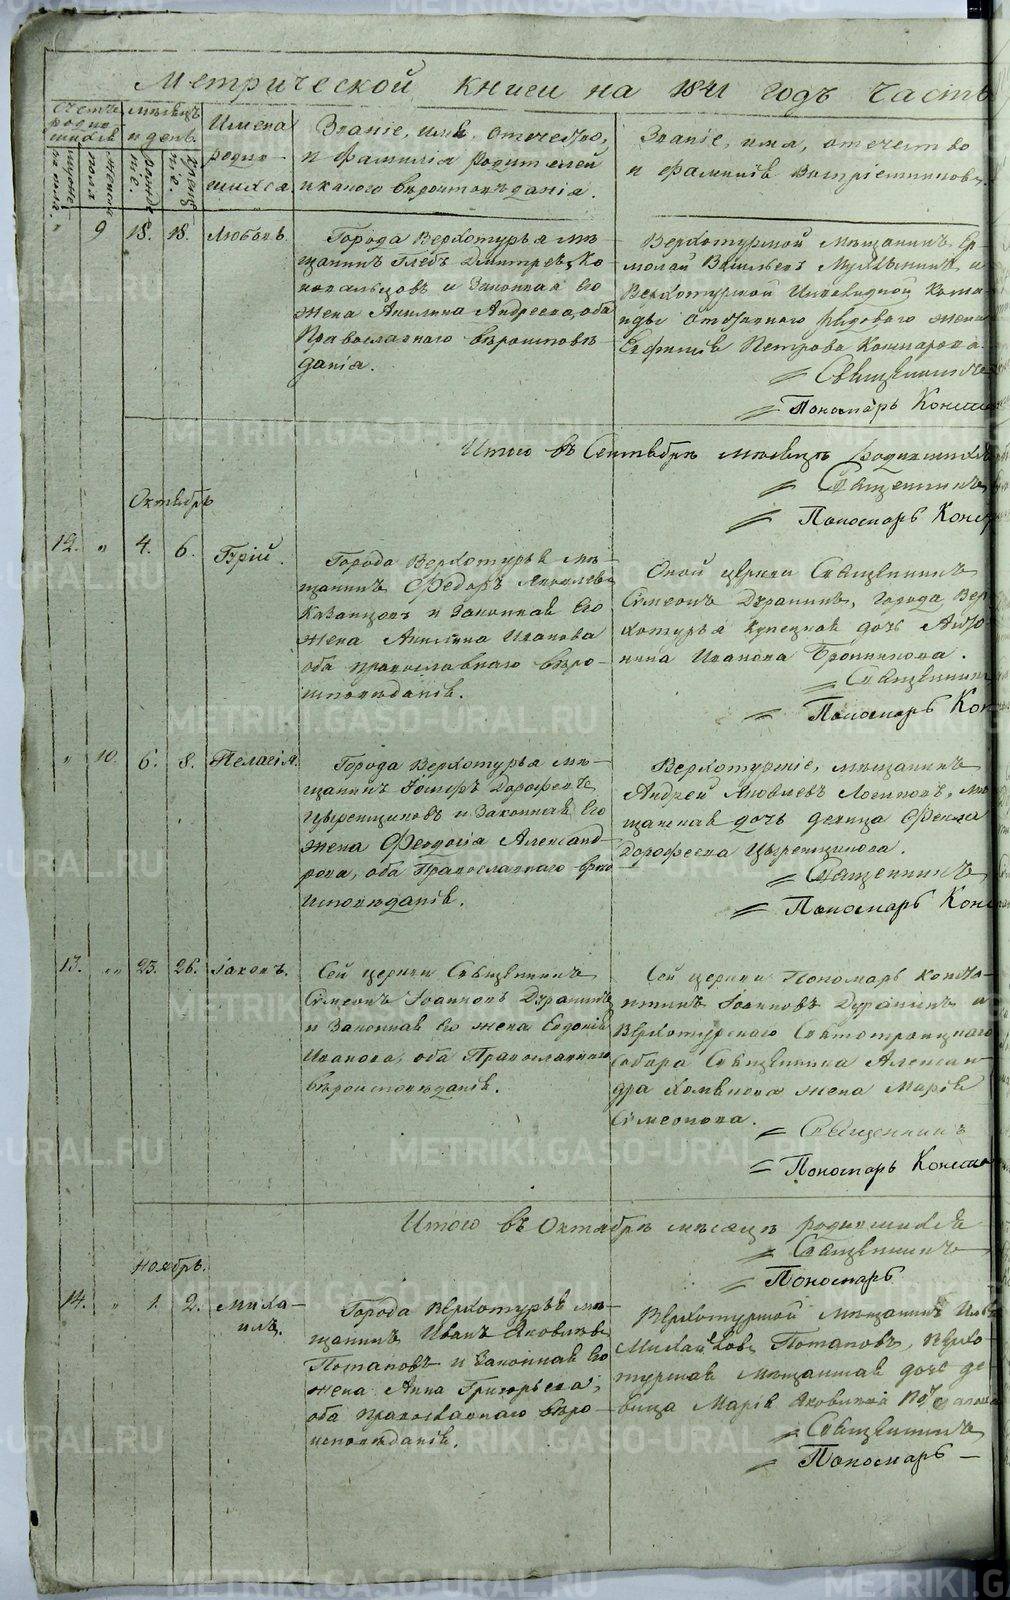 Метрической книги на 1841 годъ часть
Счетъ родившихся
Мѣсяцъ и день
Имена родившихся
Званіе, имя, отечество, и фамилія родителей и какого вѣроисповѣданія.
Званіе, имя, отечество и фамилія воспріемниковъ.
" 9 18. 18. Любовь.
Города Верхотурья мѣ-
щанинъ Глебъ Дмитревъ Ко
новальцовъ и законная его
жена Акилина Андреева, оба
Православнаго вѣроисповѣ
данія.
Верхотурской мѣщанинъ Ер-
молай Васильевъ и
Верхотурской Инвалидной Кома
нды рядоваго жена
Петрова
Священникъ
Пономарь Конст
Итого въ Сентябрѣ мѣсяцѣ родившихся
Священникъ
Пономарь Конст
Октябрь
12. " 4. 6. Гурій.
Города Верхотурья мѣ-
щанинъ Федоръ Яковлевъ
Казанцовъ и законная его
жена Акилина Иванова
оба православнаго вѣро-
исповѣданія.
Оной церкви Священникъ
Симеонъ Дерябинъ, города Вер
хотурья купецкая дочь Анто-
нина Иванова Бронникова.
Священникъ
Пономарь Кон
" 10. 6. 8. Пелагія.
Города Верхотурья мѣ-
щанинъ Іосифъ Дорофеевъ
и законная его
жена Феодосія Александ-
рова, оба Православнаго вѣро
исповѣданія.
Верхотурскіе, мѣщанинъ
Андрей Яковлевъ Логиновъ, мѣ
щанская дочь девица Фекла
Дорофеева
Священникъ
Пономарь Кон
13. " 23. 26. Іаковъ.
Сей церкви Священникъ
Симеонъ Іоанновъ Дерябинъ
и законная его жена Евдокія
Иванова, оба Православнаго
вѣроисповѣданія.
Сей церкви Пономарь Конста-
нтинъ Іоанновъ Дерябинъ и
Верхотурскаго Святотроицкаго
Собора Священника Алексан-
дра жена Марія
Симеонова.
Священникъ
Пономарь Конст
Итого въ Октябрѣ мѣсяцѣ родившихся
Священникъ
Пономарь
Ноябрь.
14. " 1. 2. Миха-
илъ.
Города Верхотурья мѣ-
щанинъ Иванъ Яковлевъ
Потаповъ и законная его
жена Анна Григорьева,
оба православнаго вѣро-
исповѣданія.
Верхотурской мѣщанинъ
Потаповъ, Верхо-
турская мѣщанская дочь де
вица Марія
Священникъ
Пономарь –
METRIKI.GASO-URAL.RU